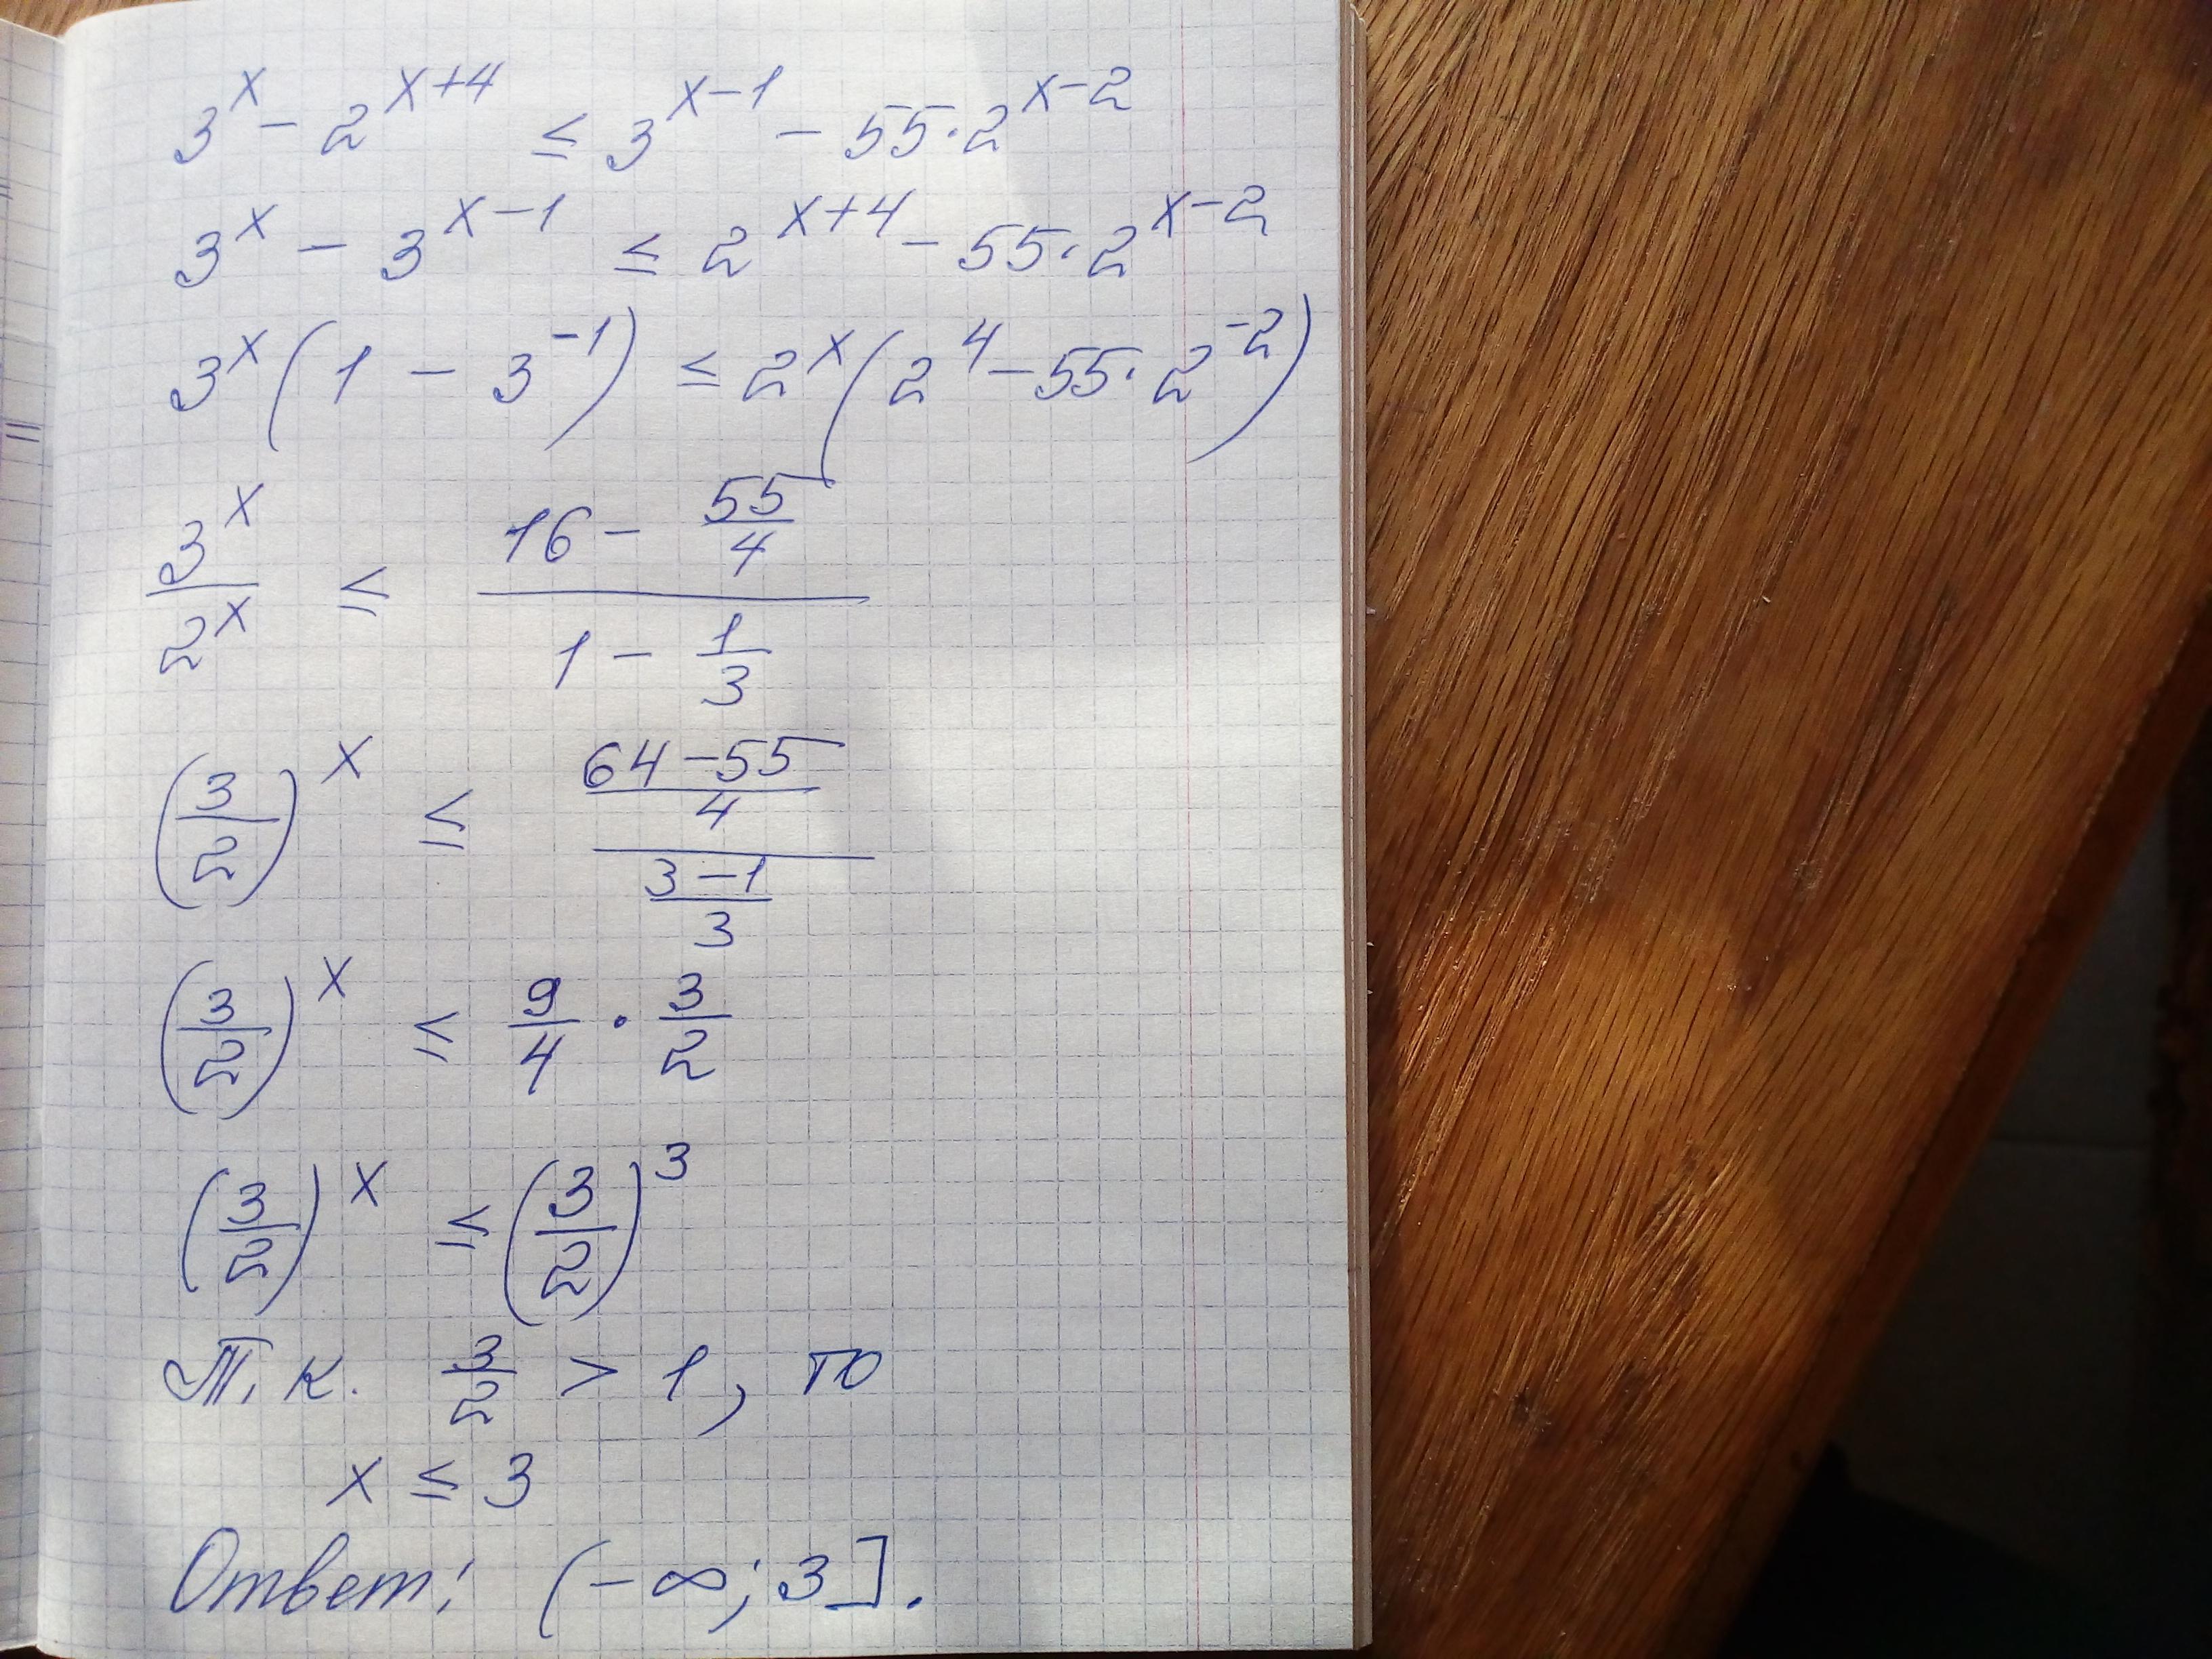 3^x - 2^{x+4} ≤ 3^{x-1} - 55·2^{x-2}
3^x - 3^{x-1} ≤ 2^{x+4} - 55·2^{x-2}
3^x(1 - 3^{-1}) ≤ 2^x(2^4 - 55·2^{-2})
\frac{3^x}{2^x} ≤ \frac{16 - \frac{55}{4}}{1 - \frac{1}{3}}
(\frac{3}{2})^x ≤ \frac{\frac{64-55}{4}}{\frac{3-1}{3}}
(\frac{3}{2})^x ≤ \frac{9}{4} · \frac{3}{2}
(\frac{3}{2})^x ≤ (\frac{3}{2})^3
Т. к. \frac{3}{2} > 1, то
x ≤ 3
Ответ: (-∞; 3].